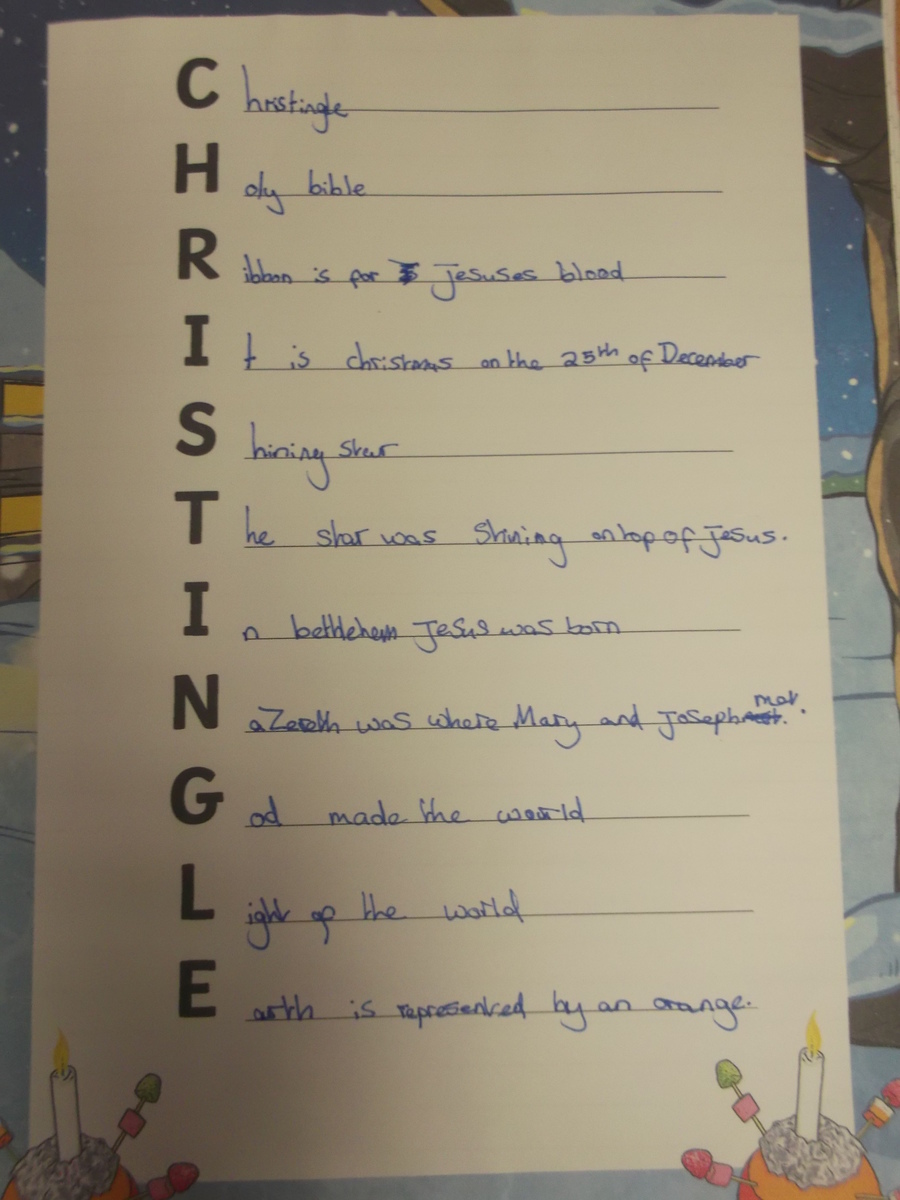 Christingle
Holy bible
Ribbon is for Jesuses blood
It is christmas on the 25th of December
Shining star
The star was Shining on top of Jesus.
In bethlehem Jesus was born
NaZereth was where Mary and Joseph met.
God made the world
Light up the world
Earth is represented by an orange.